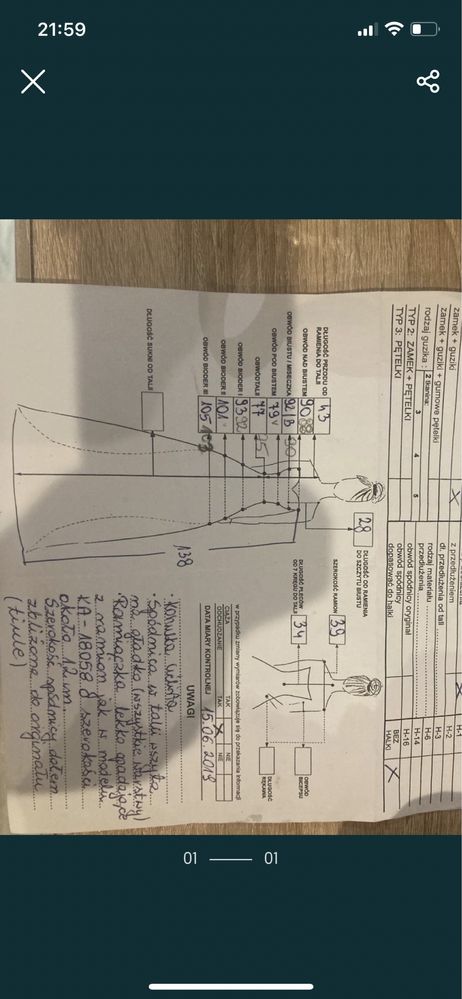 21:59
zamek + guziki
zamek + guziki + gumowe pętelki
rodzaj guzika :
2 tkanina:
3
4
5
TYP 2: ZAMEK + PĘTELKI
TYP 3: PĘTELKI
X
z przedłużeniem
dł. przedłużenia od tali
rodzaj materiału
przedłużenia
obwód spódnicy oryginał
obwód spódnicy
dopasować do halki
X
H-1
H-2
H-3
H-6
H-14
H-16
BEZ
HALKI
X
DŁUGOŚĆ PRZODU OD
RAMIENIA DO TALII
43
OBWÓD NAD BIUSTEM
90 88
OBWÓD BIUSTU / MISECZKA
92/B 90
OBWÓD POD BIUSTEM
79
OBWÓD TALII
77 75
OBWÓD BIODER I
93 92
OBWÓD BIODER II
101
OBWÓD BIODER III
105 103
DŁUGOŚĆ SUKNI OD TALII
138
28
DŁUGOŚĆ OD RAMIENIA
DO SZCZYTU BIUSTU
SZEROKOŚĆ RAMION
39
DŁUGOŚĆ PLECÓW
OD 7 KRĘGU DO TALII
34
OBWÓD
BICEPSU
DŁUGOŚĆ
RĘKAWA
w przypadku zmiany wymiarów zobowiązuję się do przekazania informacji
CIĄŻA TAK NIE
ODCHUDZANIE TAK X NIE
DATA MIARY KONTROLNEJ 15.06.2019
UWAGI
Spódnica w talii wszyta
na gładko (wszystkie warstwy)
Ramiączka lekko opadające
z ramion jak w modelu
KA-18058 o szerokości
około 12 cm
Szerokość spódnicy dołem
zbliżona do oryginału
(tiule)
01
01